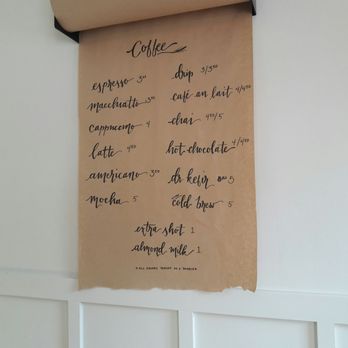 Coffee
espresso 3⁰⁰ drip 3/3⁵⁰
macchiatto 3⁵⁰ café au lait 4/4⁵⁰
cappuccino 4 chai 4⁵⁰/5
latte 4⁵⁰ hot chocolate 4/4⁵⁰
americano 3⁵⁰ dr kefir 5
mocha 5 cold brew 5
extra shot 1
almond milk 1